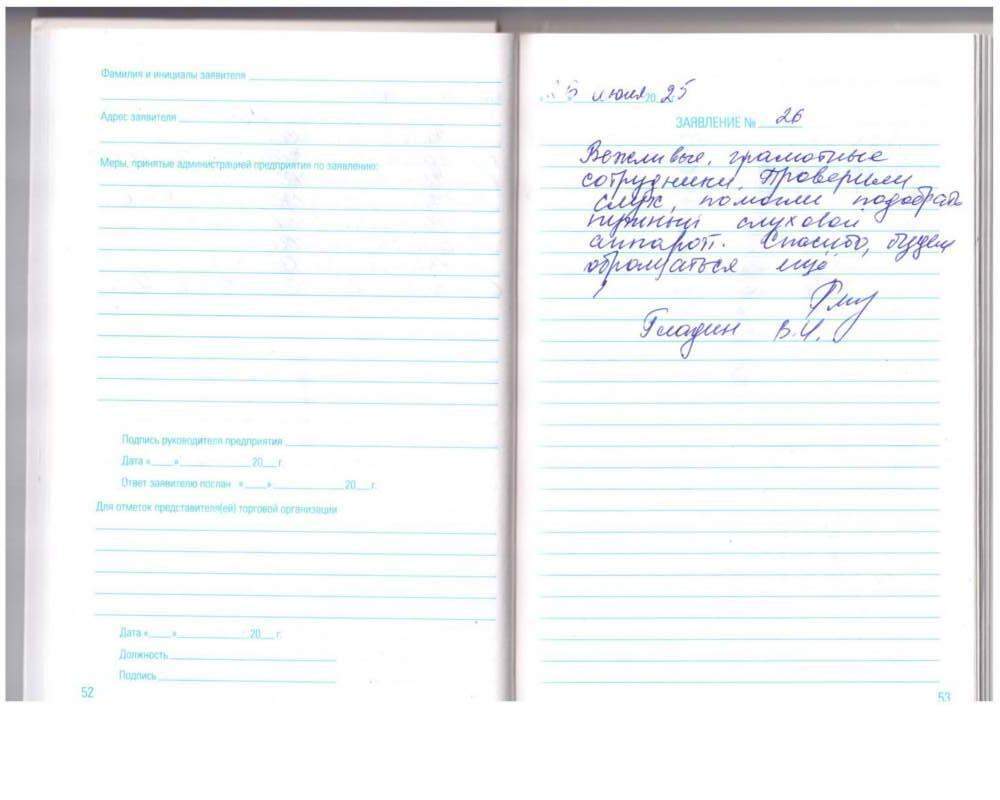 Фамилия и инициалы заявителя
Адрес заявителя
Меры, принятые администрацией предприятия по заявлению:
Подпись руководителя предприятия
Дата «____»____________20___г.
Ответ заявителю послан «____»____________20___г.
Для отметок представителя(ей) торговой организации
Дата «____»____________20___г.
Должность
Подпись
52
июля 2025
ЗАЯВЛЕНИЕ № 26
Вежливые, грамотные
сотрудники. Проверили
слух, помогли подобрать
нужный слуховой
аппарат. Спасибо, будем
обращаться ещё
Гладин В.И.
53